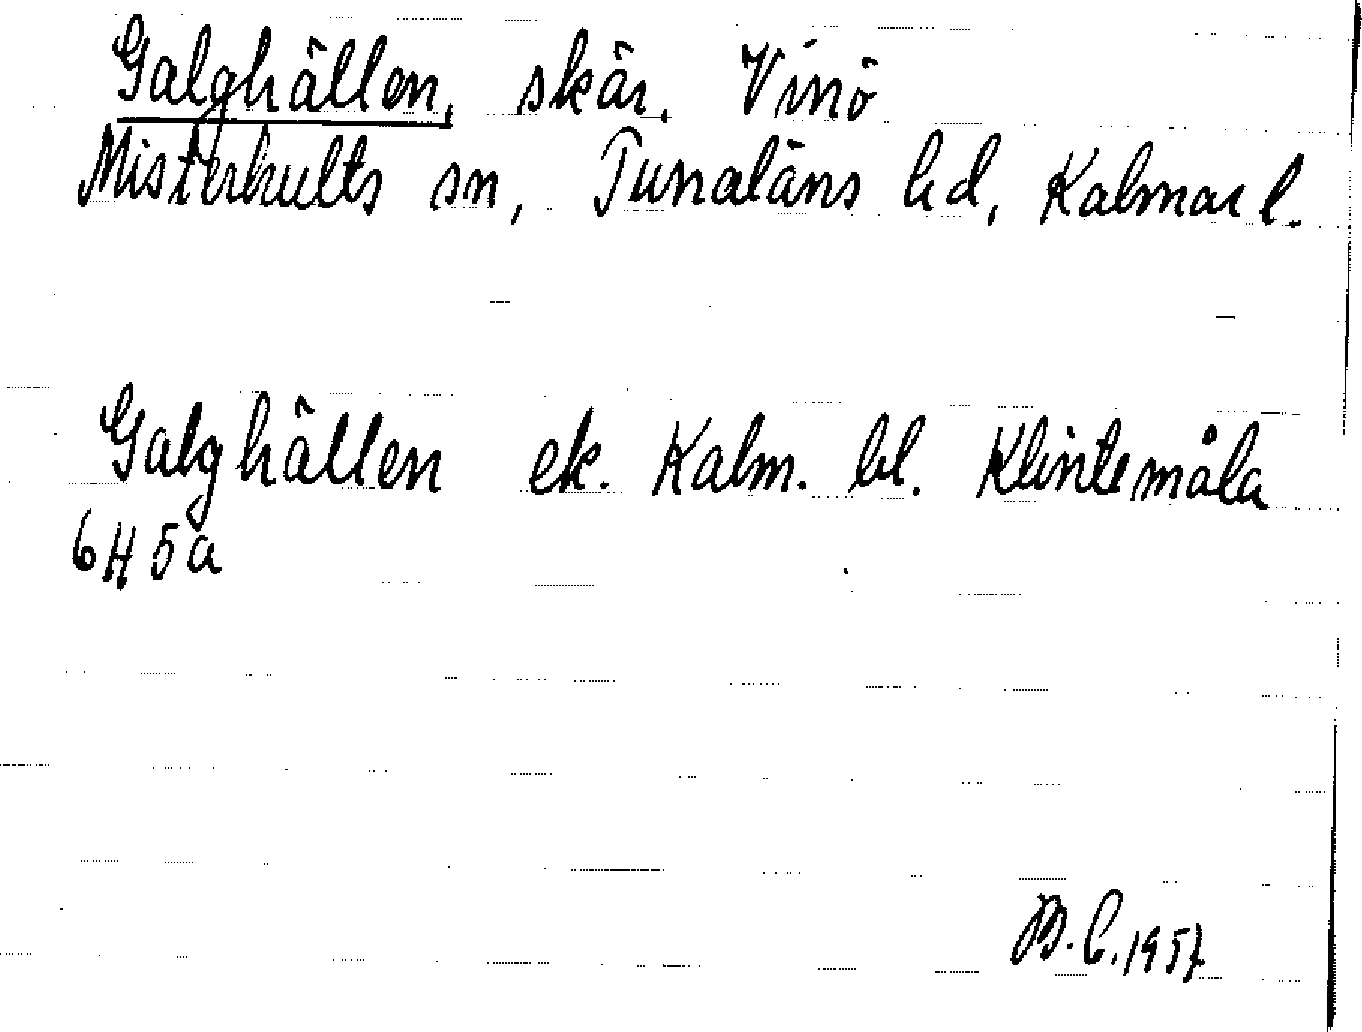 Galghällen, skär, Vinö
Misterhults sn, Tunaläns hd, Kalmar l.
Galghällen ek. Kalm. bl. Klintemåla
6H5a
B.C. 1957